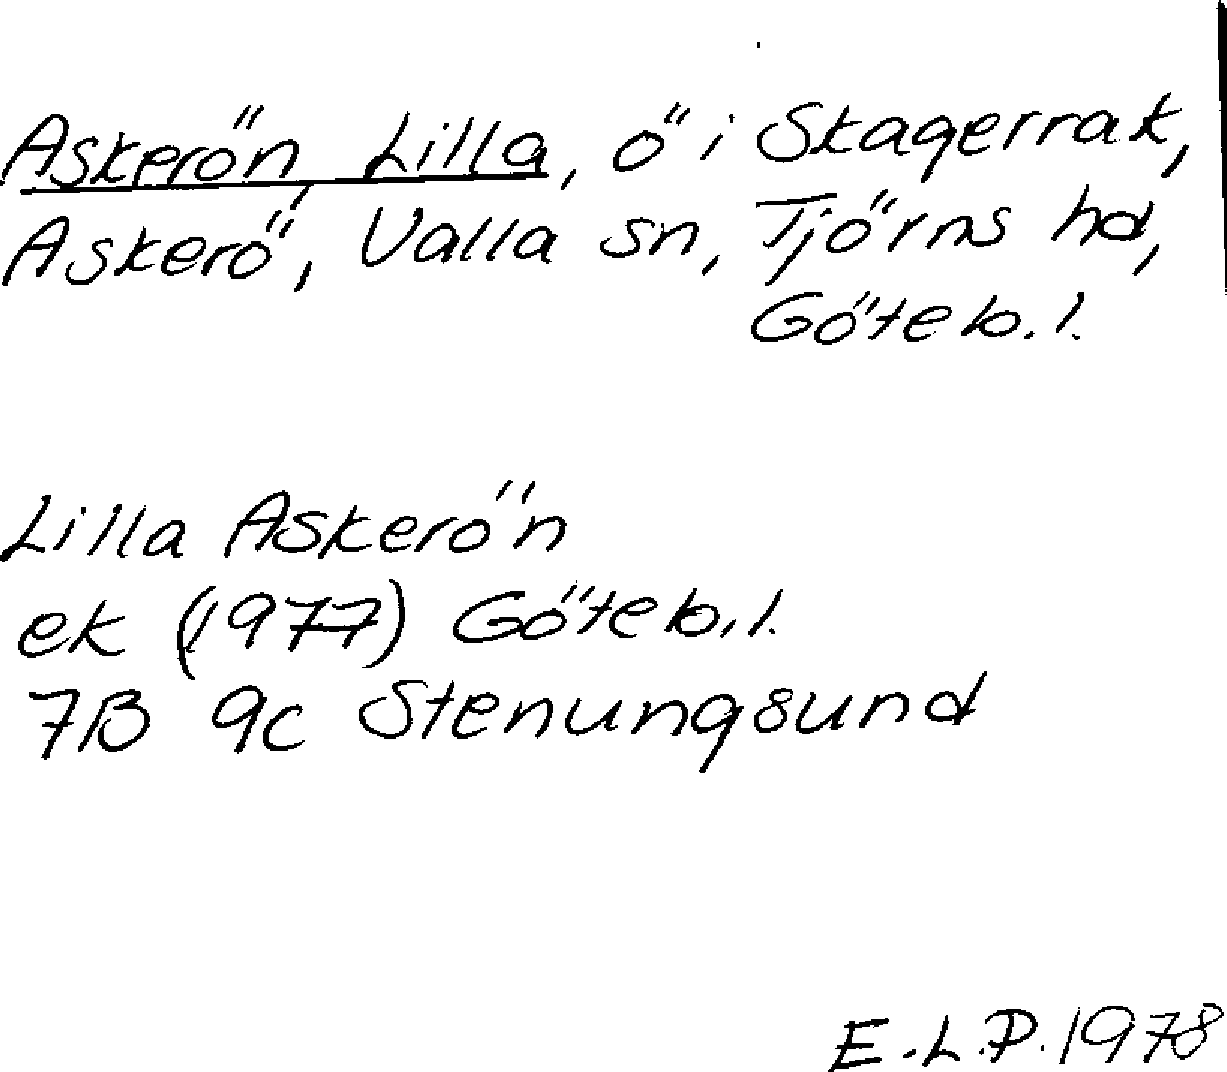 Askerön, Lilla, ö i Skagerrak,
Askerö, Valla sn, Tjörns hd,
Göteb.l.
Lilla Askerön
ek (1977) Göteb.l.
7B 9c Stenungsund
E.L.P. 1978